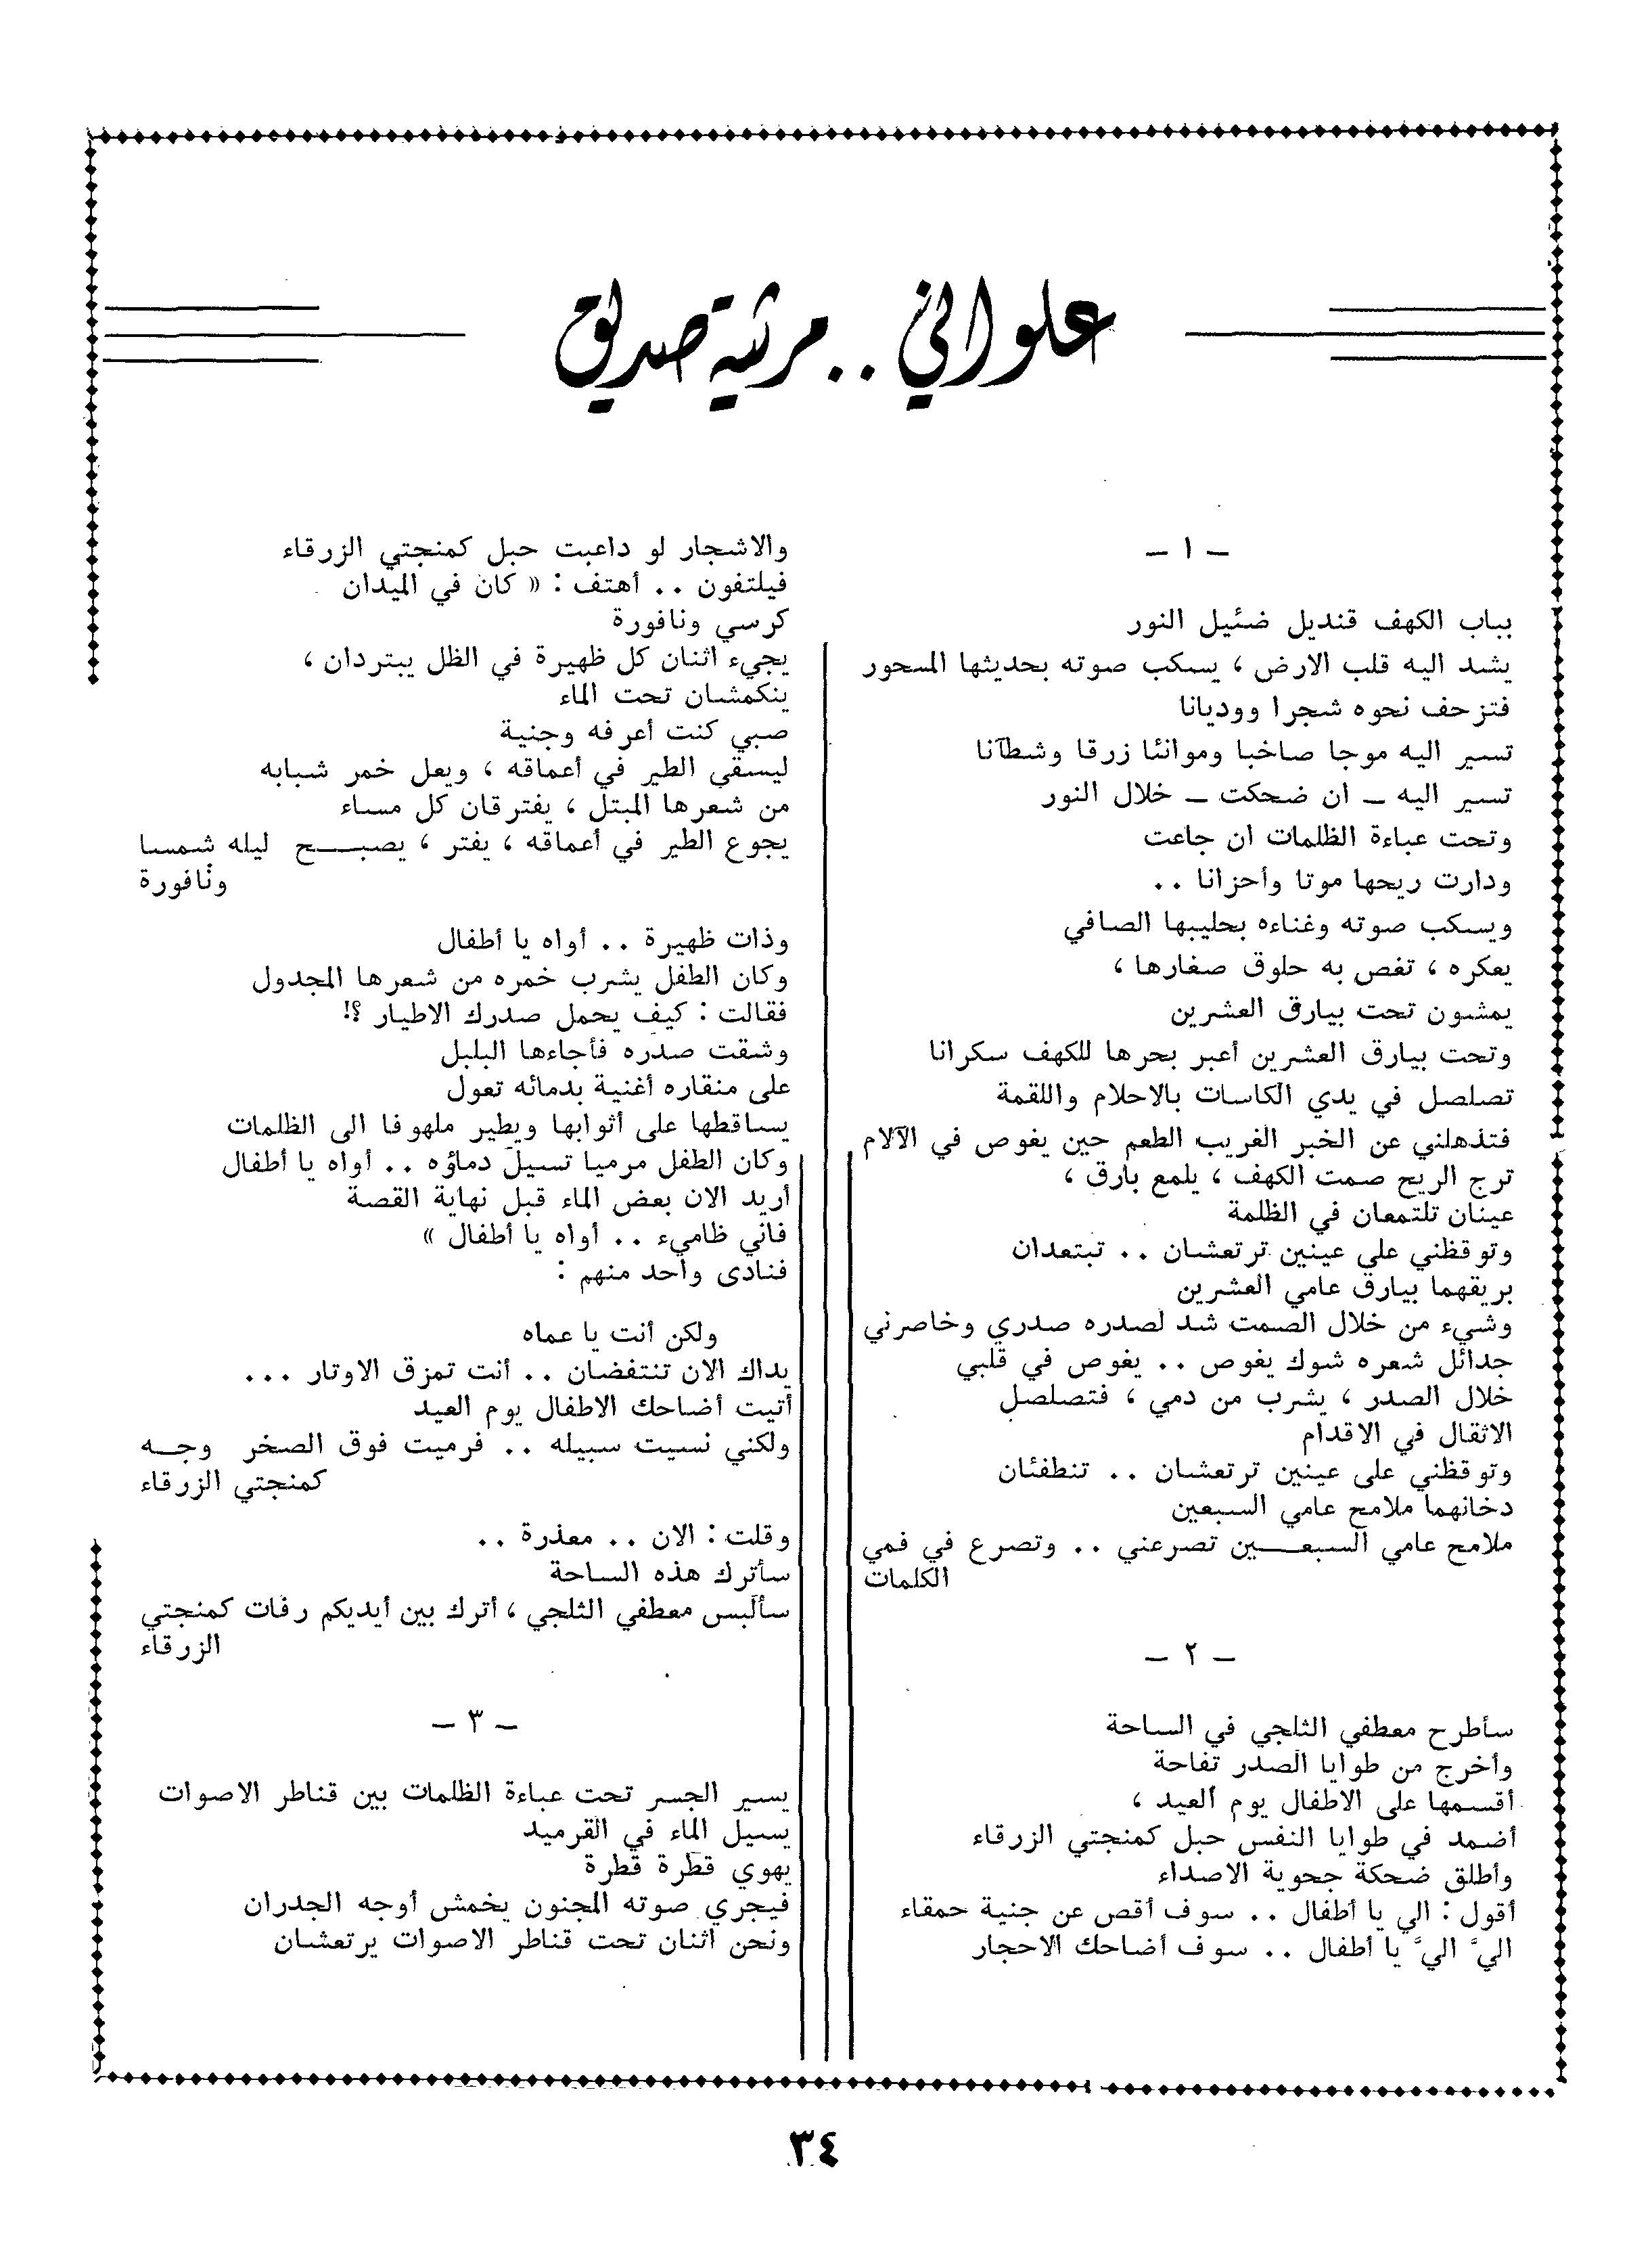 علواني .. مرثية صديق
- ١ -
بباب الكهف قنديل ضئيل النور
يشد اليه قلب الارض ، يسكب صوته بحديثها المسحور
فتزحف نحوه شجرا ووديانا
تسير اليه موجا صاخبا وموانئا زرقا وشطآنا
تسير اليه – ان ضحكت – خلال النور
وتحت عباءة الظلمات ان جاعت
ودارت ريحها موتا وأحزانا ..
ويسكب صوته وغناءه بحليبها الصافي
يعكره ، تغص به حلوق صغارها ،
يمشون تحت بيارق العشرين
وتحت بيارق العشرين أعبر بحرها للكهف سكرانا
تصلصل في يدي الكاسات بالاحلام واللقمة
فتذهلني عن الخبر الغريب الطعم حين يغوص في الآلام
ترج الريح صمت الكهف ، يلمع بارق ،
عينان تلتمعان في الظلمة
وتوقظني على عينين ترتعشان .. تبتعدان
بريقهما بيارق عامي العشرين
وشيء من خلال الصمت شد لصدره صدري وخاصرني
جدائل شعره شوك يغوص .. يغوص في قلبي
خلال الصدر ، يشرب من دمي ، فتصلصل
الاثقال في الاقدام
وتوقظني على عينين ترتعشان .. تنطفئان
دخانهما ملامح عامي السبعين
ملامح عامي السبعـــين تصرعني .. وتصرع في فمي
الكلمات
- ٢ -
سأطرح معطفي الثلجي في الساحة
وأخرج من طوايا الصدر تفاحة
أقسمها على الاطفال يوم العيد ،
أضمد في طوايا النفس حبل كمنجتي الزرقاء
وأطلق ضحكة جحوية الاصداء
أقول : الي يا أطفال .. سوف أقص عن جنية حمقاء
اليَّ اليَّ يا أطفال .. سوف أضاحك الاحجار
والاشجار لو داعبت حبل كمنجتي الزرقاء
فيلتفون .. أهتف : « كان في الميدان
كرسي ونافورة
يجيء اثنان كل ظهيرة في الظل يبتردان ،
ينكمشان تحت الماء
صبي كنت أعرفه وجنية
ليسقي الطير في أعماقه ، ويعل خمر شبابه
من شعرها المبتل ، يفترقان كل مساء
يجوع الطير في أعماقه ، يفتر ، يصبـــح ليله شمسا
ونافورة
وذات ظهيرة .. أواه يا أطفال
وكان الطفل يشرب خمره من شعرها المجدول
فقالت : كيف يحمل صدرك الاطيار ؟!
وشقت صدره فأجاءها البلبل
على منقاره أغنية بدمائه تعول
يساقطها على أثوابها ويطير ملهوفا الى الظلمات
وكان الطفل مرميا تسيل دماؤه .. أواه يا أطفال
أريد الان بعض الماء قبل نهاية القصة
فاني ظامىء .. أواه يا أطفال »
فنادى واحد منهم :
ولكن أنت يا عماه
يداك الان تنتفضان .. أنت تمزق الاوتار ...
أتيت أضاحك الاطفال يوم العيد
ولكني نسيت سبيله .. فرميت فوق الصخر وجــه
كمنجتي الزرقاء
وقلت : الان .. معذرة ..
سأترك هذه الساحة
سألبس معطفي الثلجي ، أترك بين أيديكم رفات كمنجتي
الزرقاء
- ٣ -
يسير الجسر تحت عباءة الظلمات بين قناطر الاصوات
يسيل الماء في القرميد
يهوي قطرة قطرة
فيجري صوته المجنون يخمش أوجه الجدران
ونحن اثنان تحت قناطر الاصوات يرتعشان
٣٤